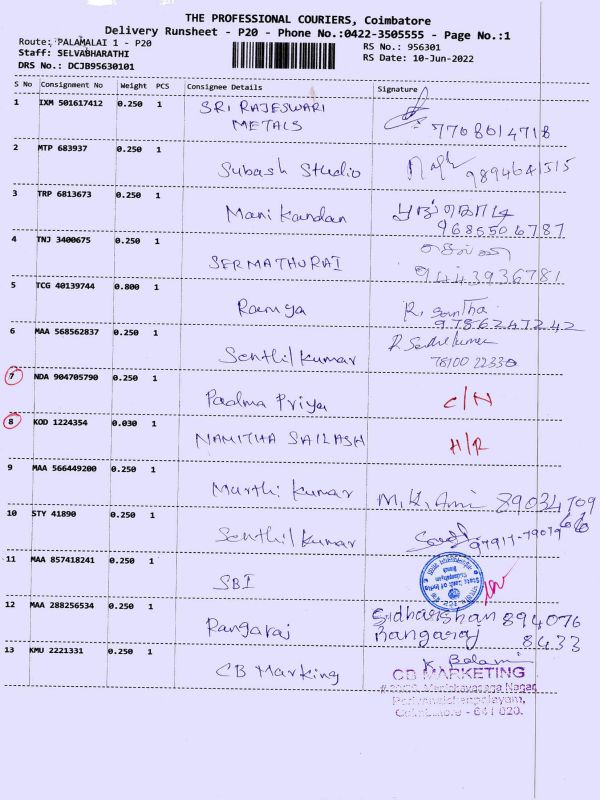 THE PROFESSIONAL COURIERS, Coimbatore
Delivery Runsheet - P20 - Phone No.:0422-3505555 - Page No.:1
Route: PALAMALAI 1 - P20
RS No.: 956301
Staff: SELVABHARATHI
RS Date: 10-Jun-2022
DRS No.: DCJB95630101
S No Consignment No Weight PCS Consignee Details Signature
1 IXM 501617412 0.250 1 SRI RAJESWARI
METALS 7708014718
2 MTP 683937 0.250 1 Subash Studio 9894641515
3 TRP 6813673 0.250 1 Mani Kandan
9685506787
4 TNJ 3400675 0.250 1 SERMATHURAI செல்வி
9443936781
5 TCG 40139744 0.800 1 Ramya R. Santha
9786247242
6 MAA 568562837 0.250 1 Senthil Kumar R Senthilkumar
78100 22330
7 NDA 904705790 0.250 1 Padma Priya C/N
8 KOD 1224354 0.030 1 NAMITHA SAILASH H/R
9 MAA 566449200 0.250 1 Murthi Kumar M.K. Ami 89034709
10 STY 41890 0.250 1 Senthil Kumar 97917-79079
11 MAA 857418241 0.250 1 SBI State Bank of India
12 MAA 288256534 0.250 1 Rangaraj Sidharshan 894076
Rangaraj 8433
13 KMU 2221331 0.250 1 CB Marking K. Balami
CB MARKETING
Nagar,
Coimbatore - 641 020.